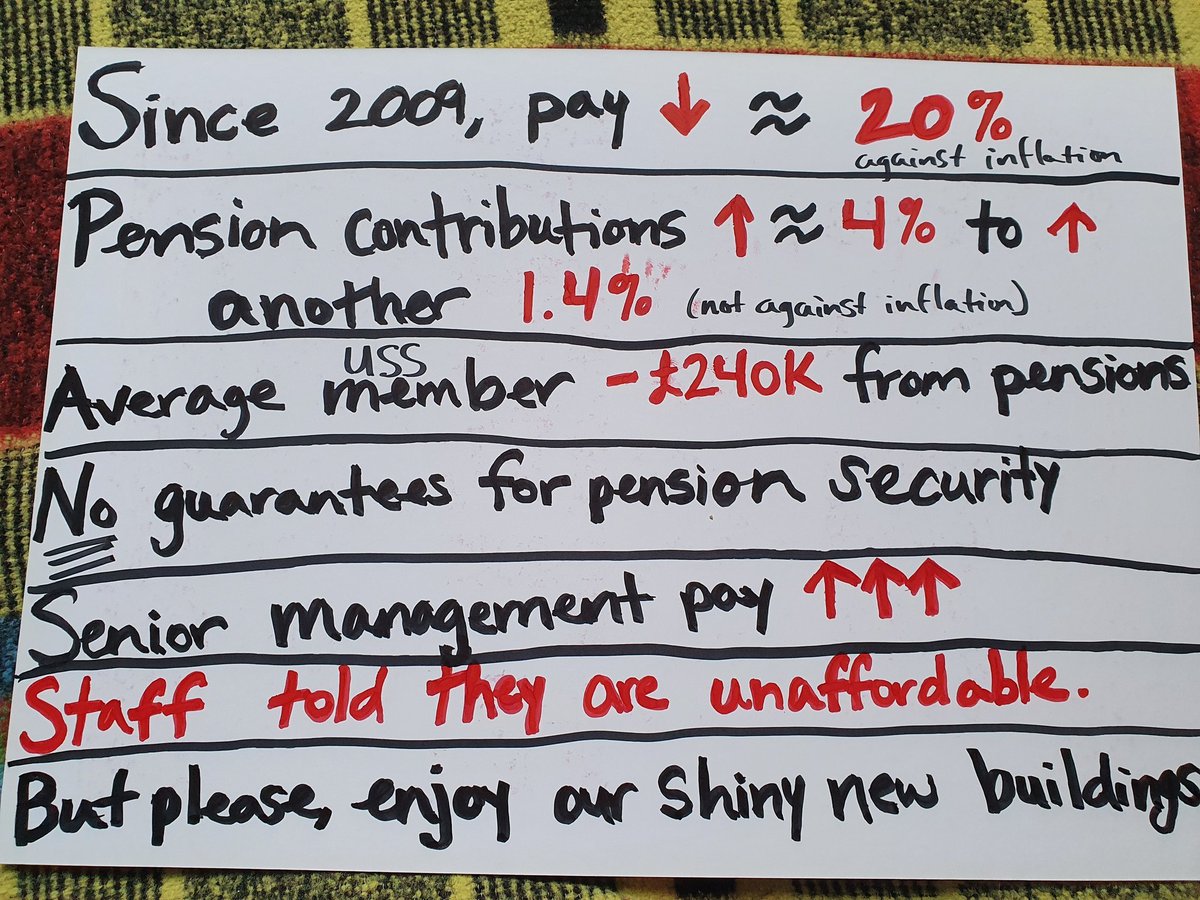 Since 2009, pay ↓ ≈ 20%
against inflation
Pension contributions ↑ ≈ 4% to ↑
another 1.4% (not against inflation)
USS
Average member -£240K from pensions
No guarantees for pension security
Senior management pay ↑↑↑
Staff told they are unaffordable.
But please, enjoy our shiny new buildings